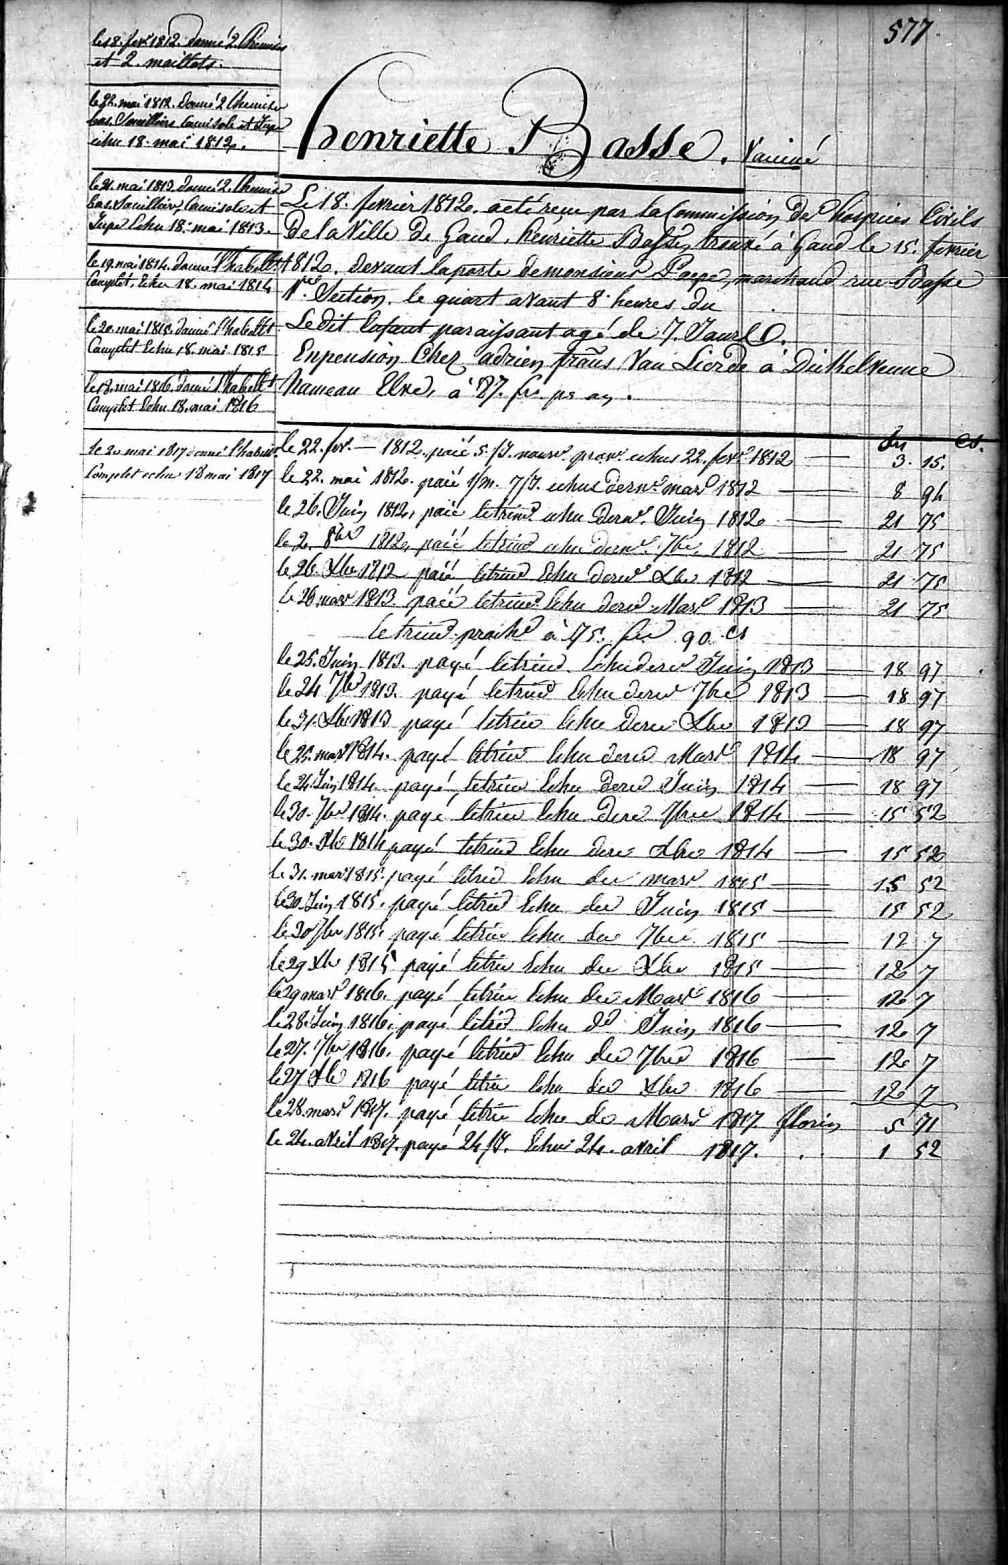 577
le 18. fevr 1812. donné 2 Chemises
et 2 maillots.
le 22. mai 1812. donné 2 Chemises
bas. Souilliers Camisole et Jupe
echu 18. mai 1812.
le 21. mai 1813. donné 2. Chemise
bas. Souilliers, Camisole et
Jupe Echu 18. mai 1813.
le 19. mai 1814. donné l'habellt
Complet, Echu 18. mai 1814
le 20. mai 1815. donné l'habellt
Complet Echu 18. mai 1815
le 17. mai 1816. donné l'habellt
Complet Echu 18. mai 1816
le 20 mai 1817 donné l'habill
Complet echu 18 mai 1817
henriette Basse. Vaciné
Le 18. fevrier 1812. acté reçue par la Commission des hospices Civils
De la Ville de Gand. henriette Basse, trouvé à Gand le 15. fevrier
1812. devant la porte de monsieur marchand rue Basse
1re Section, le quart avant 8 heures du
Ledit Enfant paraissant agé de 7. Jours.
En pension Chez adrien frans Van Lierde à Dickelvenne
hameau à 87. fr. pr an.
cs.
le 22. fevr. 1812. paié 5. echus 22. fevr 1812 3. 15.
le 22. mai 1812. paié 1/m. 7/J. echus dernr mars 1812 8 94
le 26. Juin 1812, paié le trime echu dernr. Juin 1812 21 75
le 2. 8bre 1812, paié le trime echu dernr 7bre 1812 21 75
le 26. Xbre 1812 paié le trime Echu dernr Xbre 1812 21 75
le 26 mars 1813 paié le trime Echu dernr Mars 1813 21 75
le trime prochn à 75. frs 90 cs
le 25. Juin 1813. payé le trime Echu dernr Juin 1813 18 97
le 24 7bre 1813. payé le trime Echu dernr 7bre 1813 18 97
le 31. Xbre 1813 payé le trime Echu dernr Xbre 1813 18 97
le 25. mars 1814. payé le trime Echu dernr Mars 1814 18 97
le 24 Juin 1814. payé le trime Echu dernr Juin 1814 18 97
le 30. 7bre 1814. payé le trime Echu der 7bre 1814 15 52
le 30. Xbre 1814 payé le trime Echu der Xbre 1814 15 52
le 31. mars 1815. payé le trime Echu der mars 1815 15 52
le 30. Juin 1815. payé le trime Echu der Juin 1815 15 52
le 30 7bre 1815. payé le trime Echu der 7bre 1815 12 7
le 29 Xbre 1815 payé le trime Echu der Xbre 1815 12 7
le 29 mars 1816. payé le trime Echu der Mars 1816 12 7
le 28. Juin 1816. payé le trime Echu dr Juin 1816 12 7
le 27. 7bre 1816. payé le trime Echu der 7bre 1816 12 7
le 27 Xbre 1816 payé le trime Echu der Xbre 1816 12 7
le 28. mars 1817. payé le trime Echu de Mars 1817. florins 5 71
le 24. avril 1817. payé 24/J. Echu 24. avril 1817. 1 52